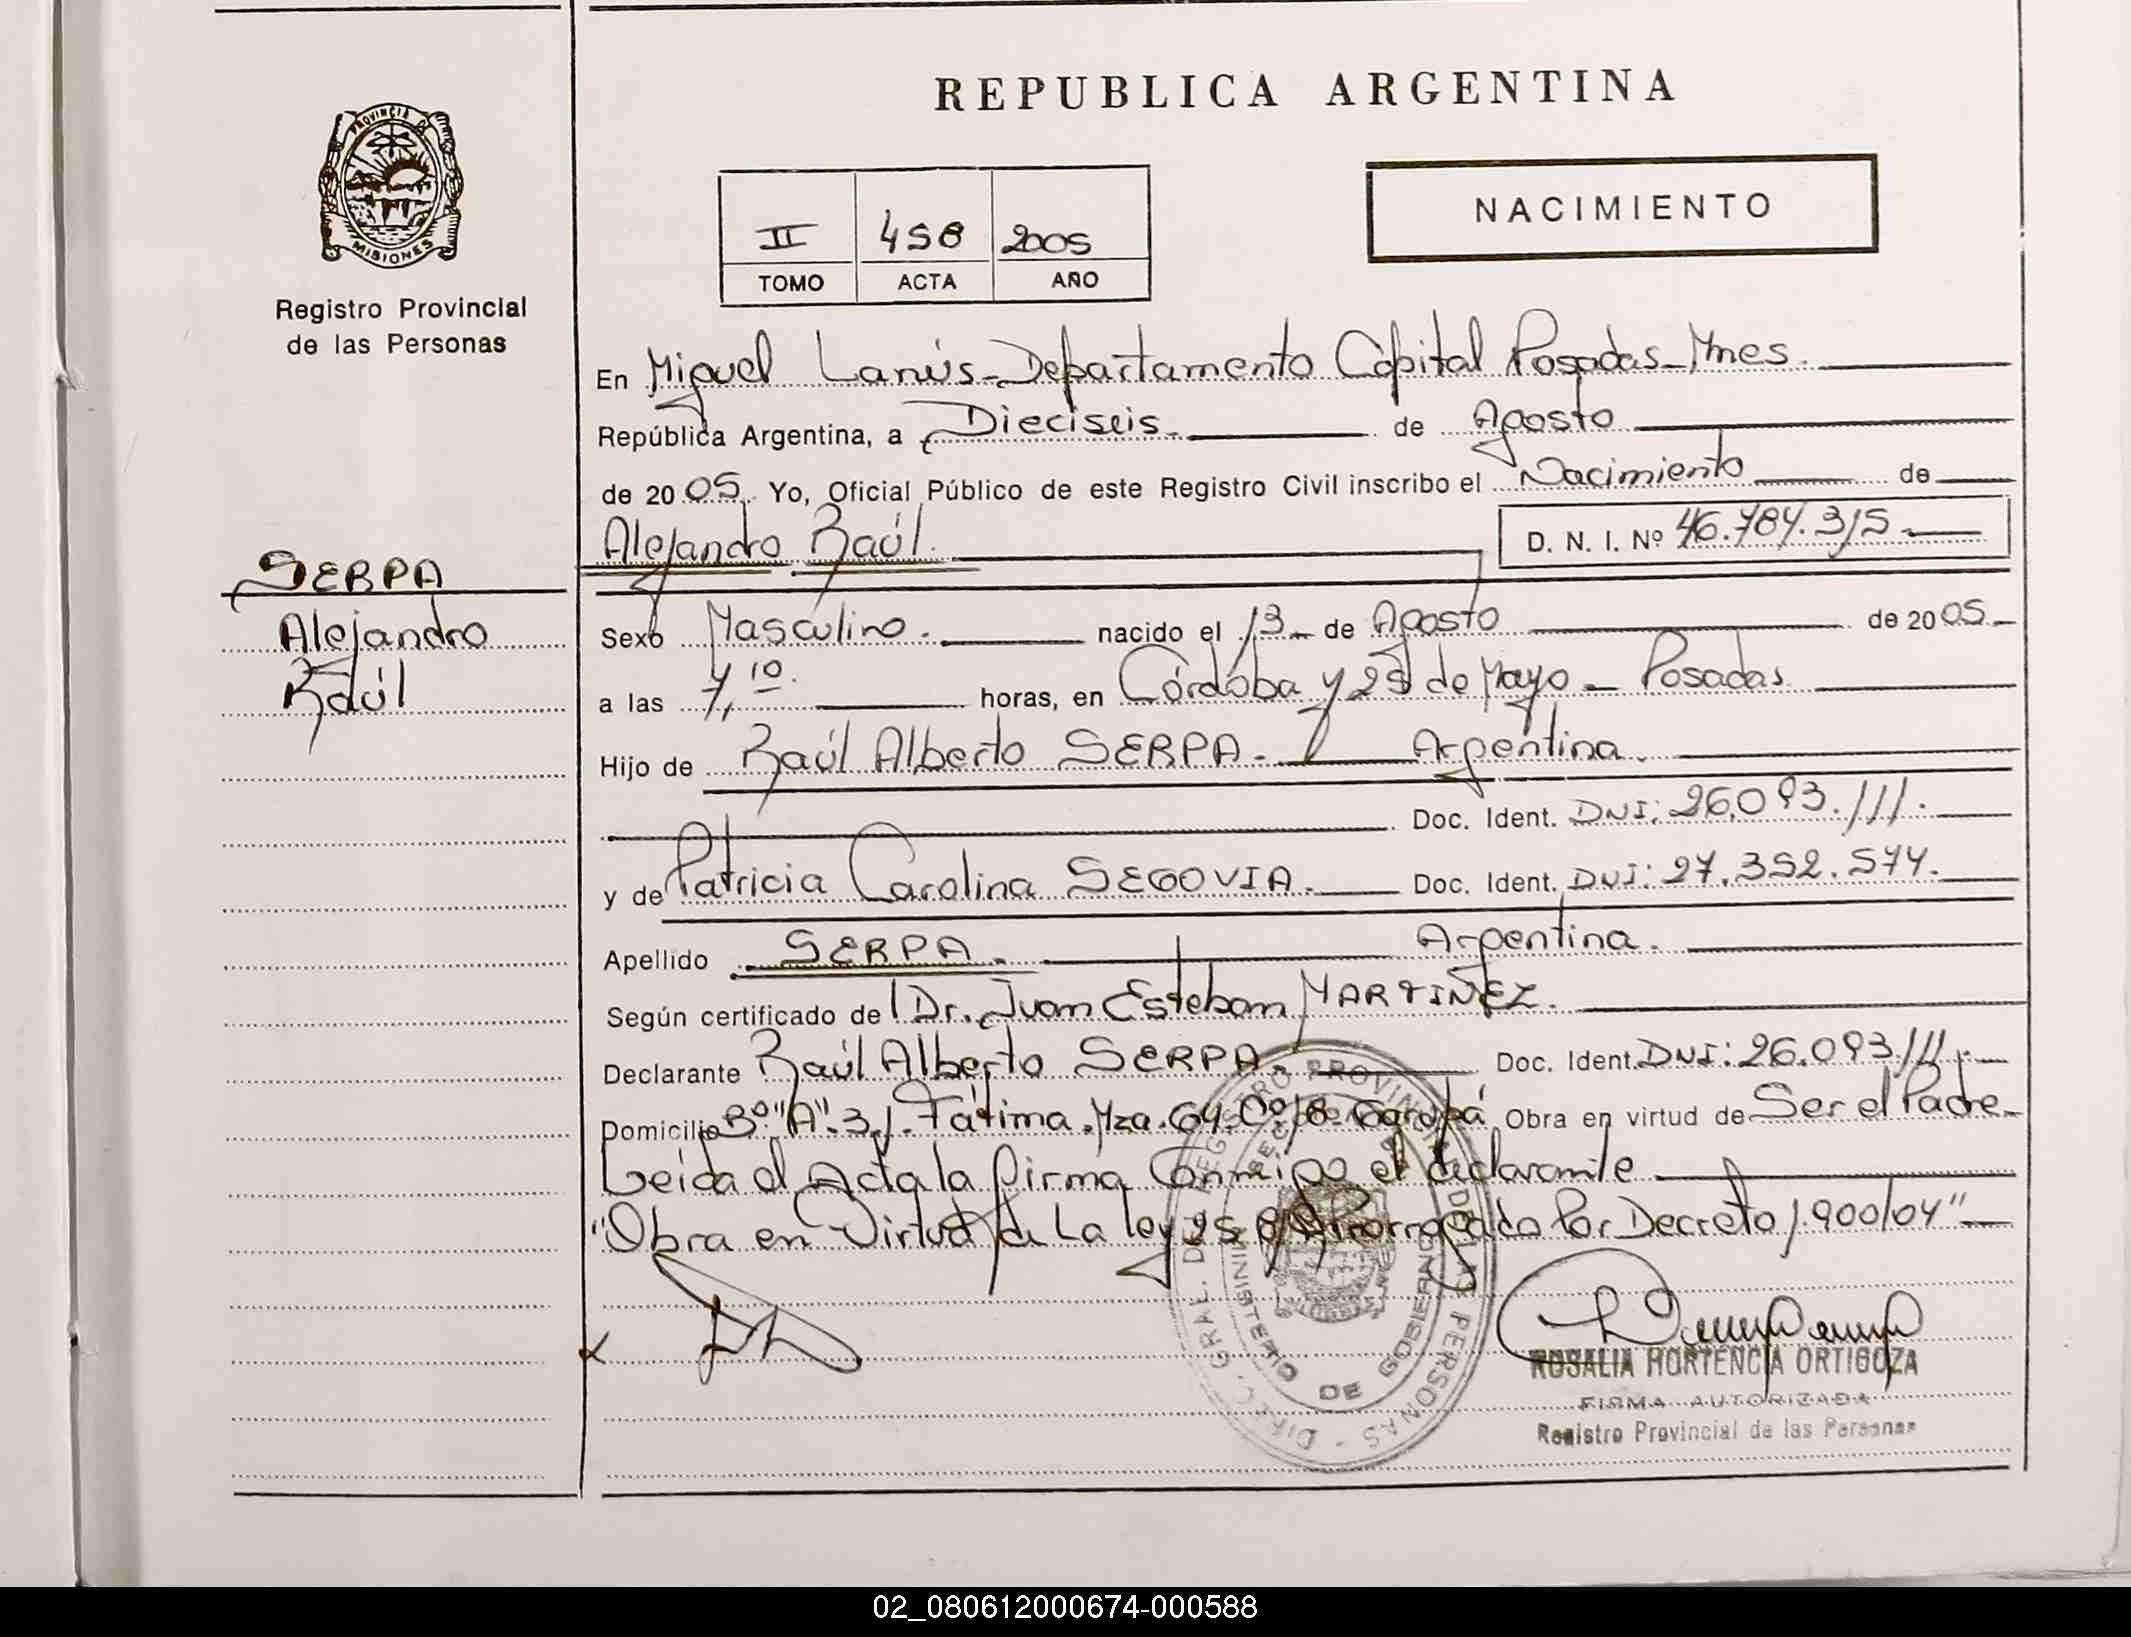 REPUBLICA ARGENTINA
PROVINCIA DE
MISIONES
Registro Provincial
de las Personas
II 458 2005
TOMO ACTA AÑO
NACIMIENTO
En Miguel Lanús - Departamento Capital Posadas - Mnes.
República Argentina, a Dieciseis de Agosto
de 2005. Yo, Oficial Público de este Registro Civil inscribo el Nacimiento de
Alejandro Raúl. D. N. I. Nº 46.784.315
SERPA
Alejandro
Raúl
Sexo Masculino. nacido el 13 de Agosto de 2005
a las 7,10. horas, en Córdoba y 25 de Mayo - Posadas
Hijo de Raúl Alberto SERPA. Argentina.
Doc. Ident. DNI: 26.093.111.
y de Patricia Carolina SEGOVIA. Doc. Ident. DNI: 27.352.574.
Apellido SERPA. Argentina.
Según certificado del Dr. Juan Esteban MARTIÑEZ.
Declarante Raúl Alberto SERPA. Doc. Ident. DNI: 26.093.111.
Domicilio Bº "A" 3.1. Fátima. Mza. 64. Cº 18. Garupá Obra en virtud de Ser el Padre
Leida el Acta la firma Conmigo el declarante
"Obra en Virtud de La ley 25 Prorrogado Por Decreto 1.900/04"
DIREC. GRAL. DE REGISTRO PROVINCIAL DE LAS PERSONAS
MINISTERIO DE GOBIERNO
ROSALIA HORTENCIA ORTIGOZA
FIRMA AUTORIZADA
Registro Provincial de las Personas
02_080612000674-000588